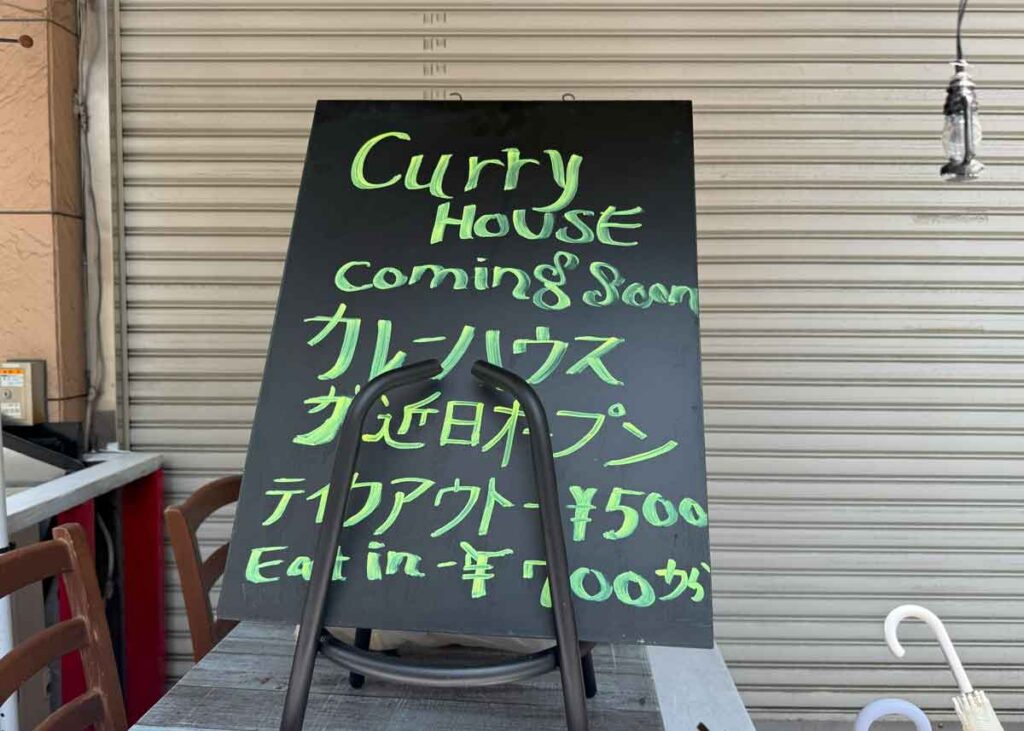 Curry
HOUSE
Coming Soon
カレーハウス
が近日オープン
テイクアウト-¥500
Eat in-¥700から